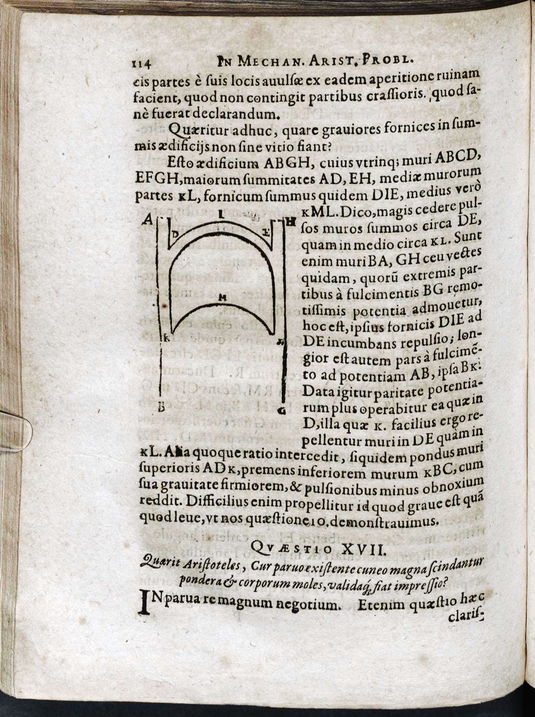 114 IN MECHAN. ARIST. PROBL.
cis partes è suis locis auulsæ ex eadem aperitione ruinam
facient, quod non contingit partibus crassioris. quod sa-
nè fuerat declarandum.
Quæritur adhuc, quare grauiores fornices in sum-
mis ædificijs non sine vitio fiant?
Esto ædificium ABGH, cuius vtrinq; muri ABCD,
EFGH, maiorum summitates AD, EH, mediæ murorum
partes KL, fornicum summus quidem DIE, medius verò
KML. Dico, magis cedere pul-
sos muros summos circa DE,
quam in medio circa KL. Sunt
enim muri BA, GH ceu vectes
quidam, quorũ extremis par-
tibus à fulcimentis BG remo-
tissimis potentia admouetur,
hoc est, ipsius fornicis DIE ad
DE incumbans repulsio; lon-
gior est autem pars à fulcimẽ-
to ad potentiam AB, ipsa BK.
Data igitur paritate potentia-
rum plus operabitur ea quæ in
D, illa quæ K. facilius ergo re-
pellentur muri in DE quàm in
KL. Alia quoque ratio intercedit, siquidem pondus muri
superioris ADK, premens inferiorem murum KBC, cum
sua grauitate firmiorem, & pulsionibus minus obnoxium
reddit. Difficilius enim propellitur id quod graue est quã
quod leue, vt nos quæstione 10. demonstrauimus.
A I H
D E
M
K
B G
QVÆSTIO XVII.
Quærit Aristoteles, Cur paruo existente cuneo magna scindantur
pondera & corporum moles, validaq; fiat impressio?
IN parua re magnum negotium. Etenim quæstio hæc
clariss-